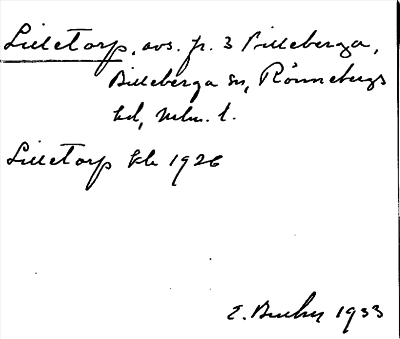 Lilletorp, avs. fr. 3 Billeberga,
Billeberga sn, Rönnebergs
hd, Mlm. l.
Lilletorp kb 1926
E. 1933